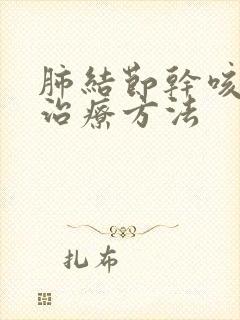 肺結節幹咳
治療方法
扎布